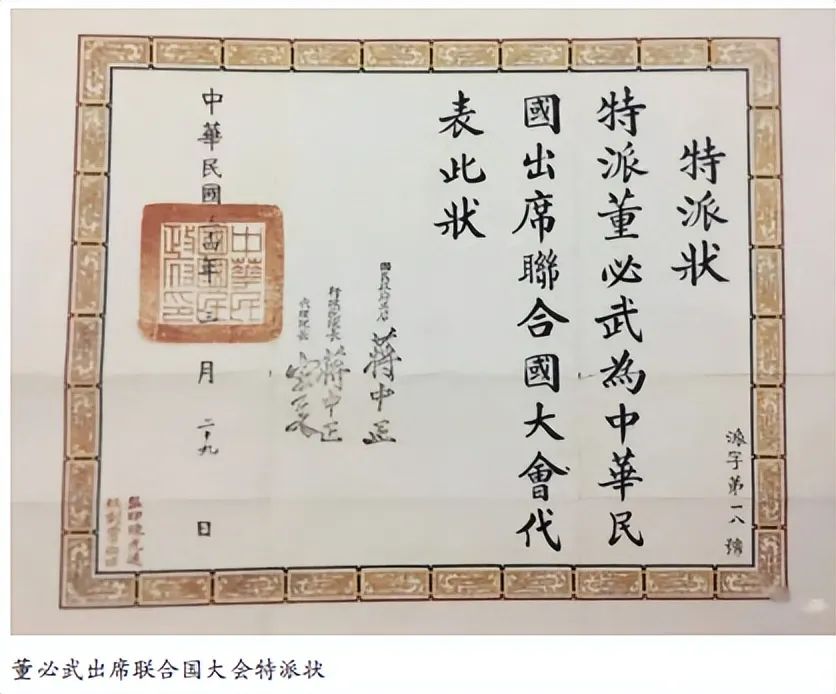 特派狀
特派董必武為中華民
國出席聯合國大會代
表此狀
國民政府主席 蔣中正
行政院院長 蔣中正
代理院長 宋子文
中華民國三十四年三月二十九日
中華民國國民政府印
派字第一八號
董必武出席联合国大会特派状